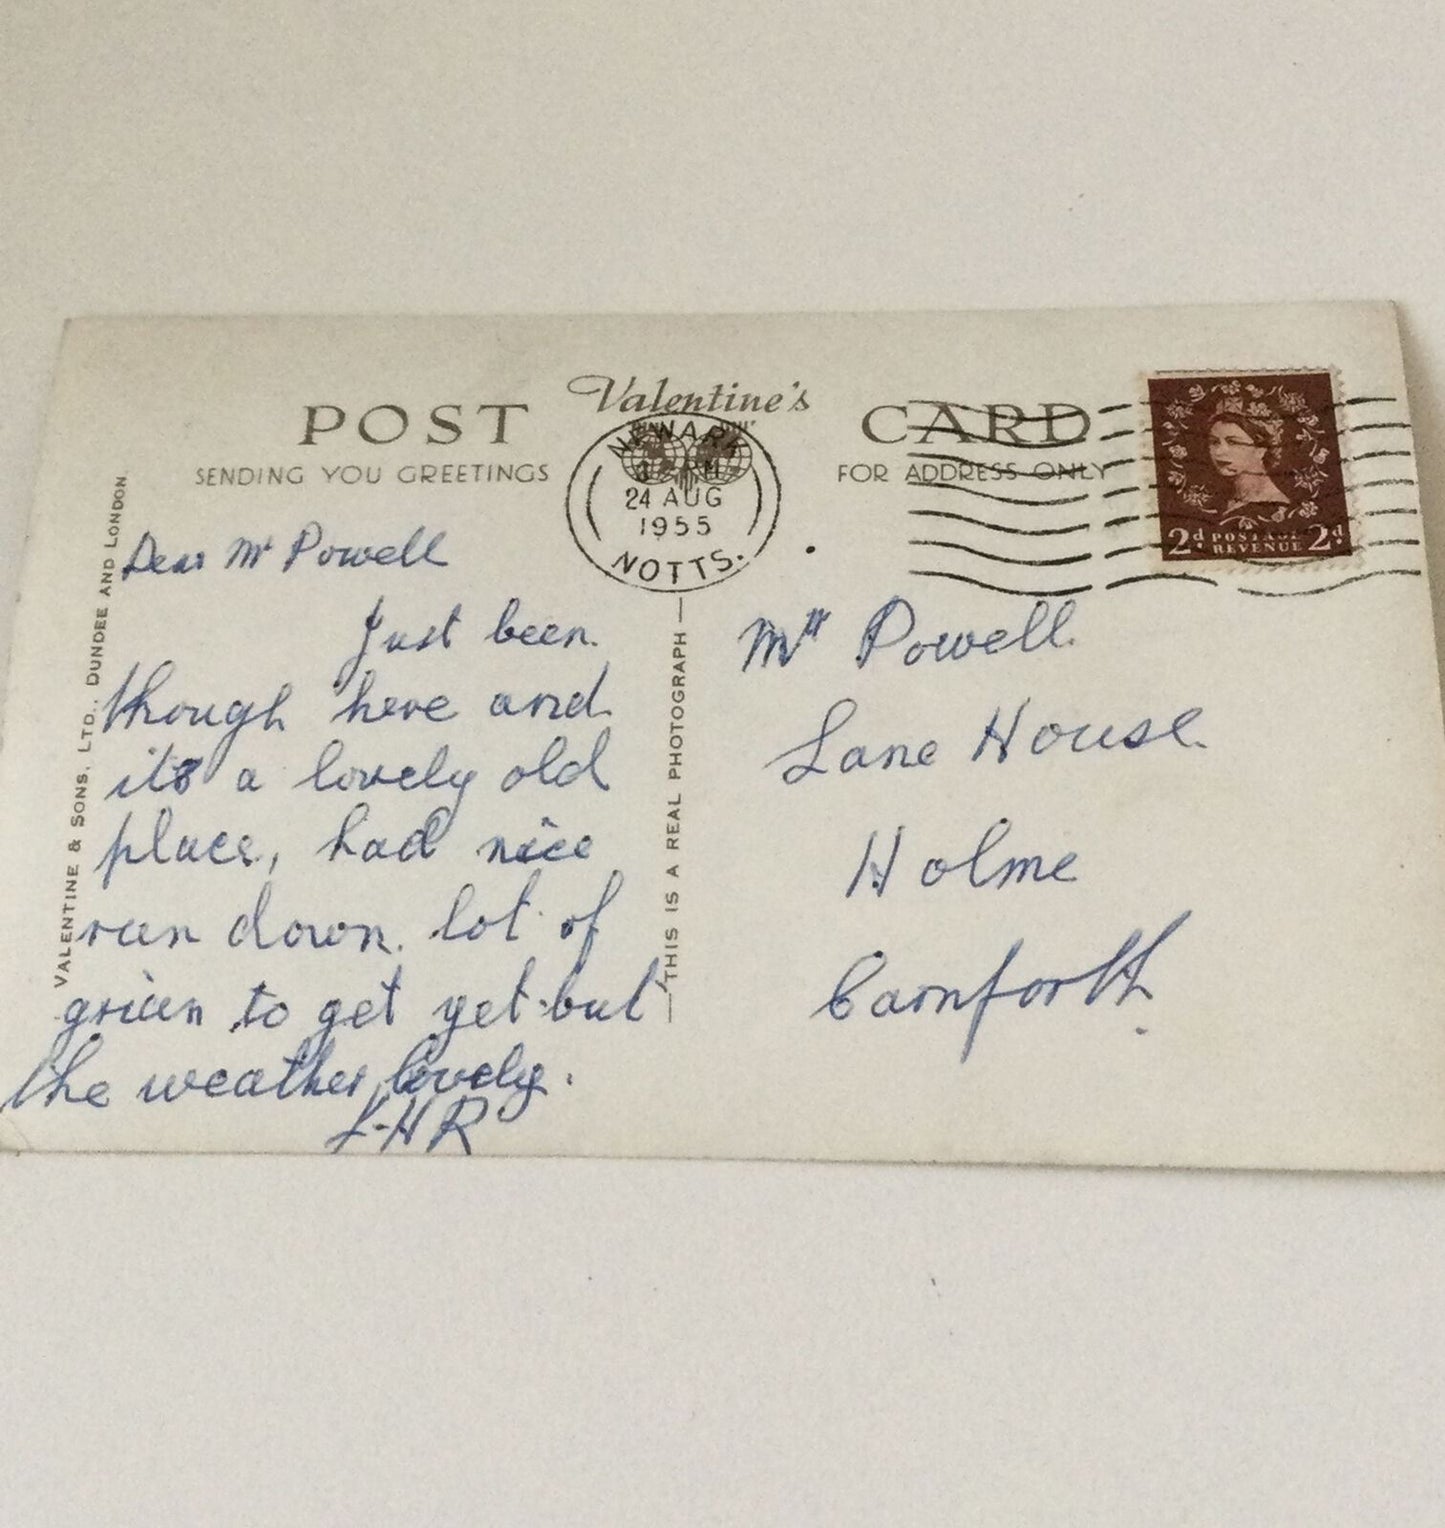 Valentine's
POST CARD
SENDING YOU GREETINGS
FOR ADDRESS ONLY
NEWARK
24 AUG
1955
NOTTS.
2d POSTAGE REVENUE 2d
VALENTINE & SONS, LTD., DUNDEE AND LONDON.
THIS IS A REAL PHOTOGRAPH
Dear Mr Powell
Just been.
though here and
its a lovely old
place, had nice
run down. lot of
grieen to get yet but
the weather lovely.
L-HR
Mr Powell.
Lane House.
Holme
Carnforth.